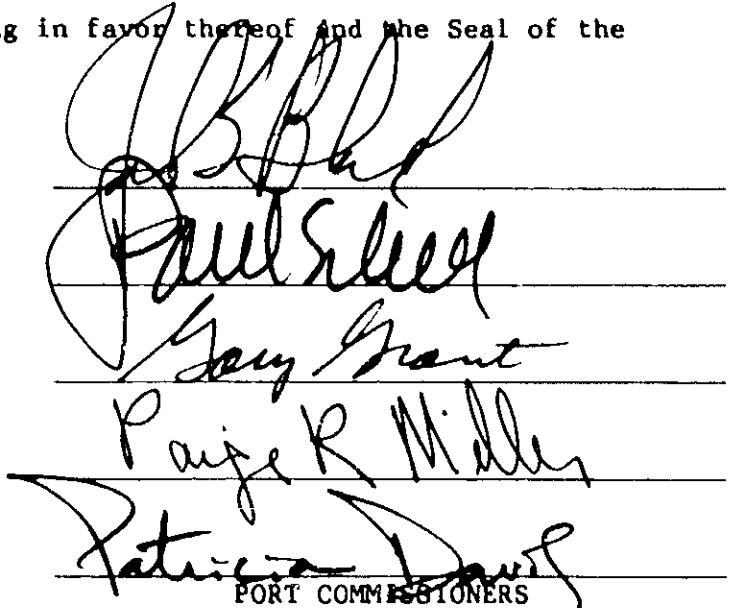 g in favor thereof and the Seal of the
Paul Schell
Gary Grant
Paige R Miller
Patricia Davis
PORT COMMISSIONERS